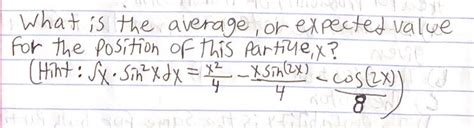 What is the average, or expected value
for the position of this particle, x?
(Hint: ∫x · sin²x dx = x²/4 - x sin(2x)/4 - cos(2x)/8)